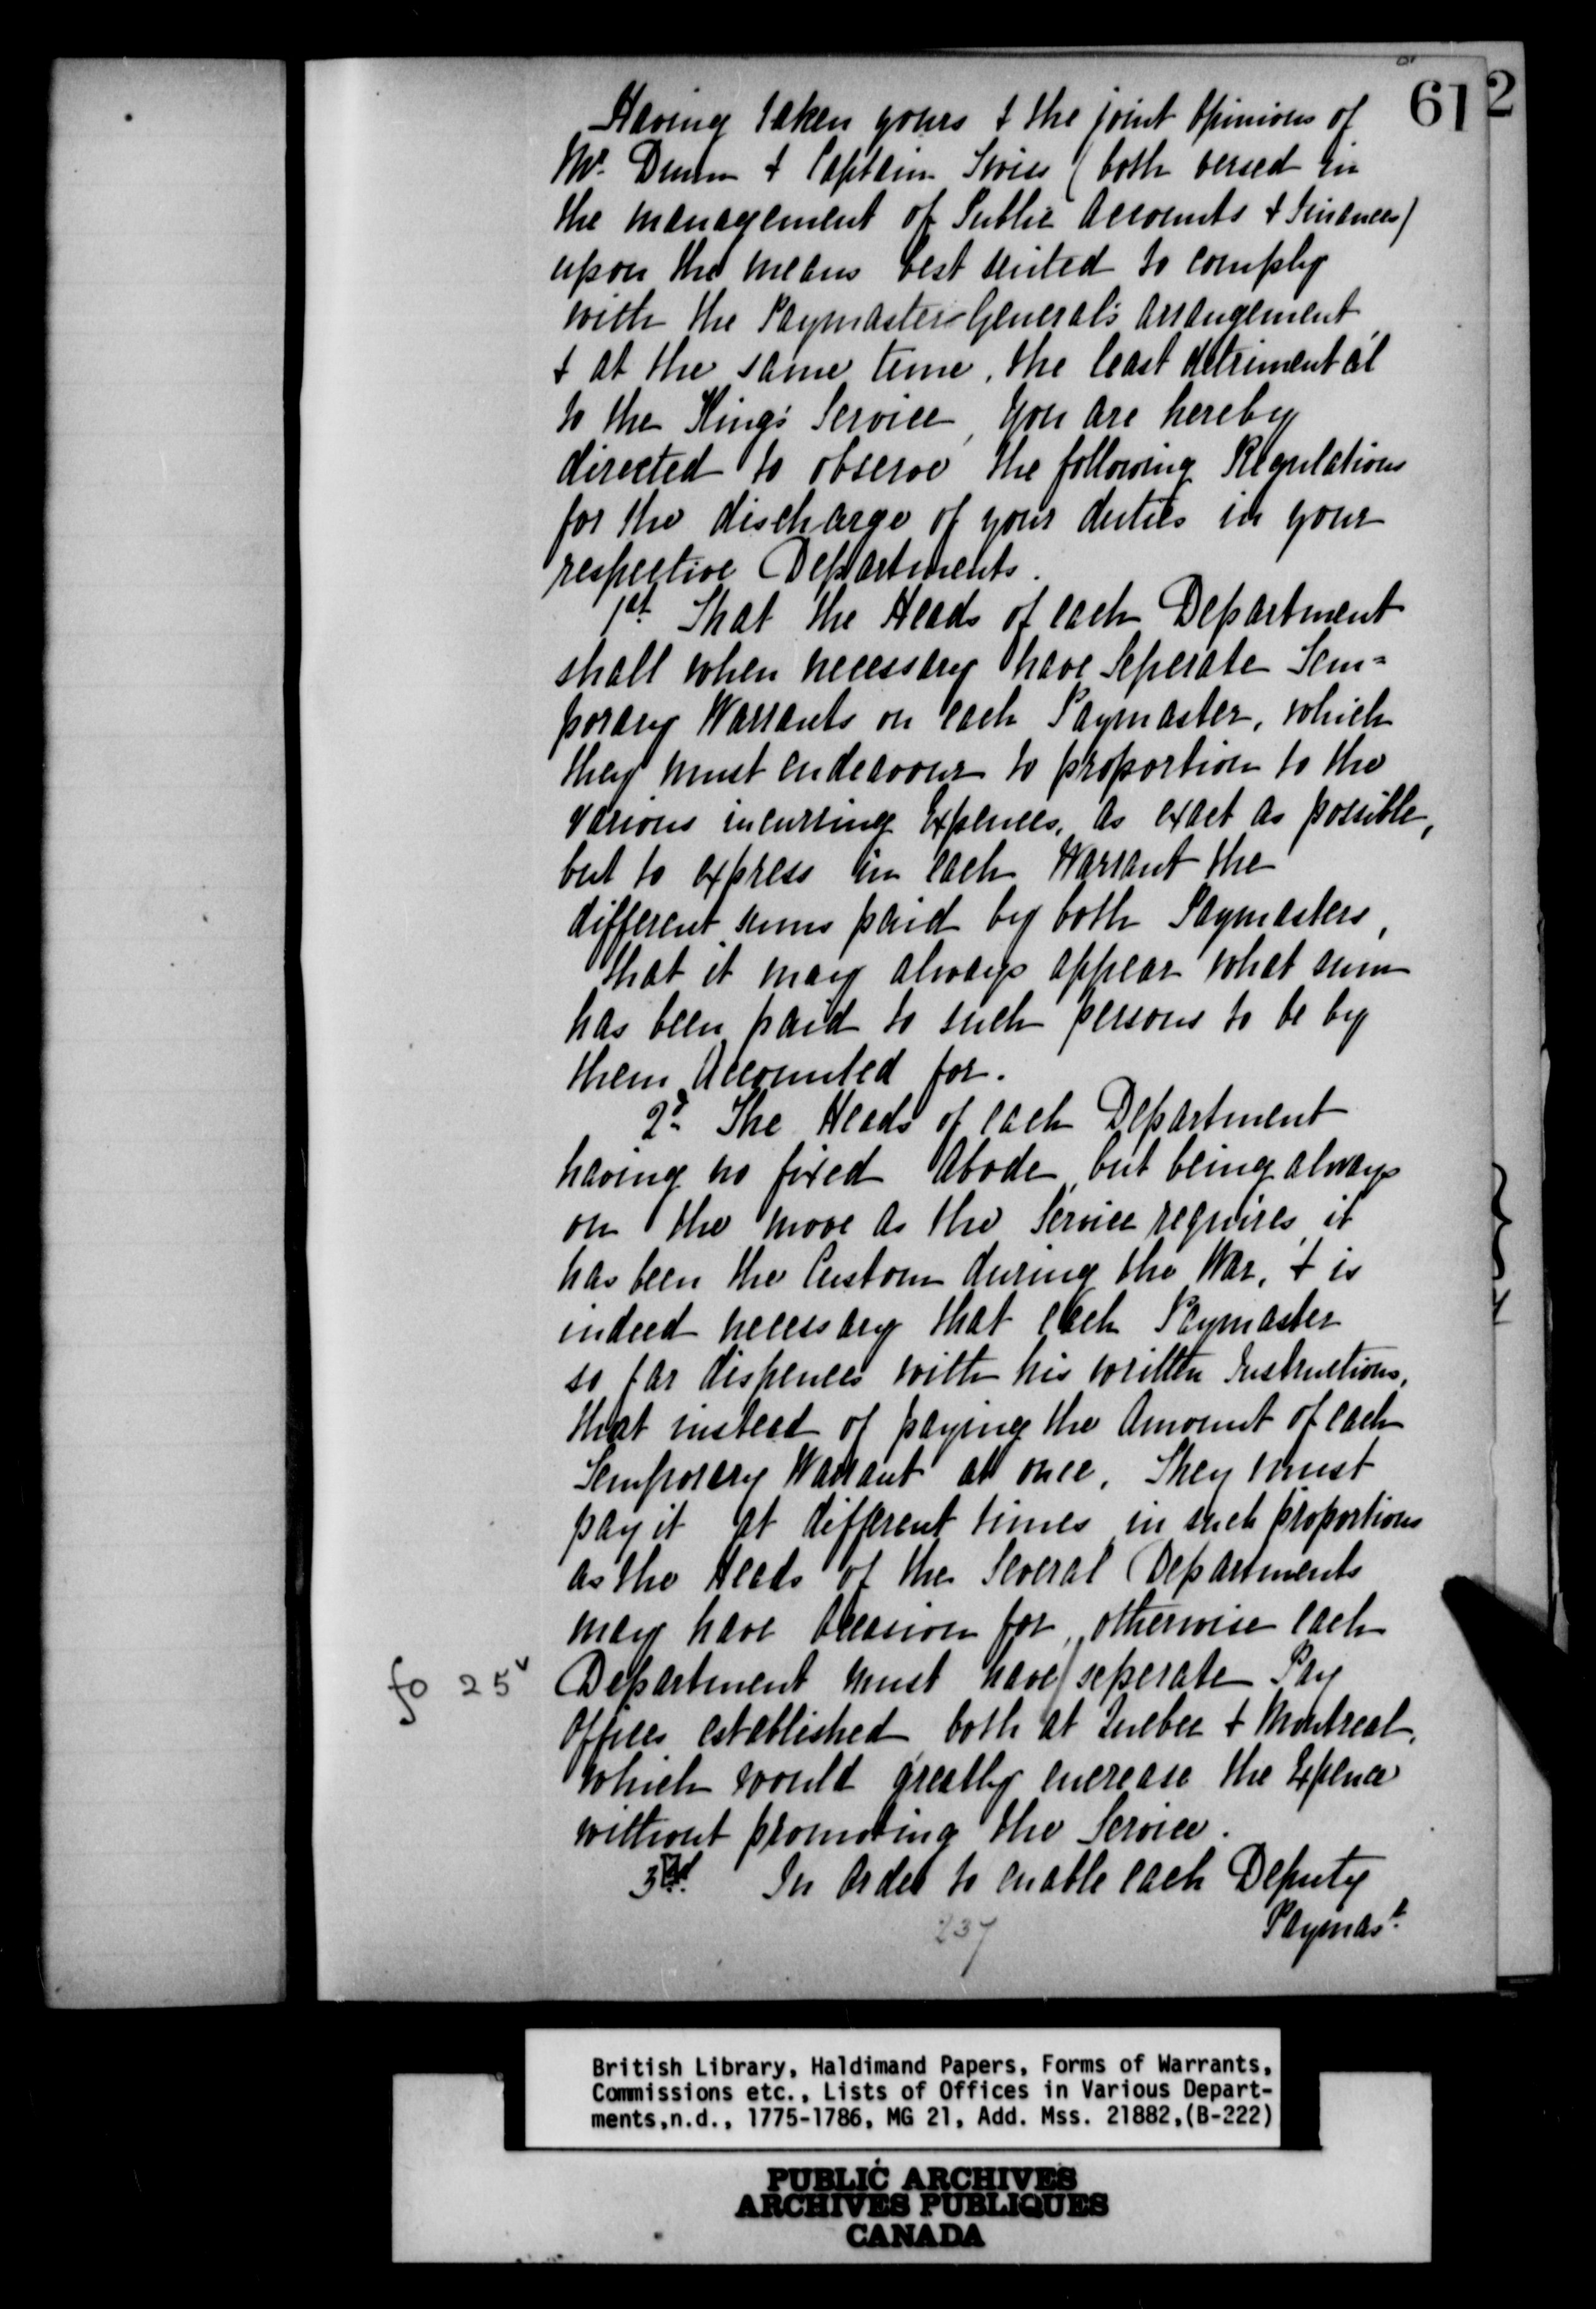 61
2
Having taken yours & the joint Opinions of
Mr. Dunn & Captain Twiss (both versed in
the management of Public Accounts & Finances)
upon the means best suited to comply
with the Paymaster General's arrangement,
& at the same time, the least detrimental
to the King's Service, You are hereby
directed to observe the following Regulations
for the discharge of your duties in your
respective Departments.
1st. That the Heads of each Department
shall when necessary have Seperate Tem=
porary Warrants on each Paymaster, which
they must endeavour to proportion to the
various incurring Expences, as exact as possible,
but to express in each Warrant the
different sums paid by both Paymasters,
that it may always appear what sum
has been paid to such persons to be by
them Accounted for.
2d. The Heads of each Department
having no fixed Abode, but being always
on the move as the Service requires, it
has been the Custom during the War, & is
indeed necessary that each Paymaster
so far dispences with his written Instructions,
that instead of paying the Amount of each
Temporary Warrant at once, They must
pay it at different times in such proportions
as the Heads of the Several Departments
may have Occasion for, otherwise each
fo 25v Department must have / seperate Pay
Offices established both at Quebec & Montreal,
which would greatly encrease the Expence
without promoting the Service.
3rd. In Order to enable each Deputy
Paymasr.
237
British Library, Haldimand Papers, Forms of Warrants,
Commissions etc., Lists of Offices in Various Depart-
ments,n.d., 1775-1786, MG 21, Add. Mss. 21882,(B-222)
PUBLIC ARCHIVES
ARCHIVES PUBLIQUES
CANADA